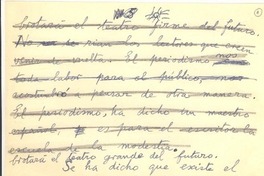 brotará el teatro firme del futuro.
No se rían los lectores que están
de vuelta. El periodismo, como
toda labor para el público, nos
acostumbró a pensar de otra manera.
El periodismo, ha dicho un maestro
español, es para el escritor la
escuela de la modestia.
brotará el teatro grande del futuro.
Se ha dicho que existe el